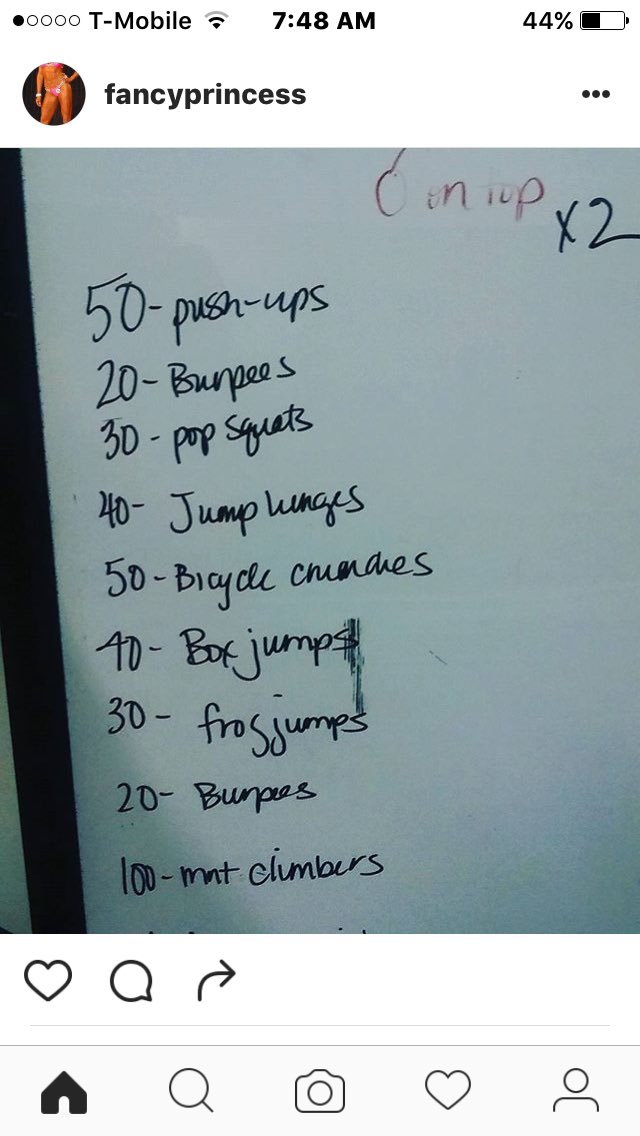 T-Mobile 7:48 AM 44%
fancyprincess
on top
x2
50- push-ups
20- Burpees
30 - pop squats
40- Jump lunges
50 - Bicycle crunches
40- Box jumps
30 - frog jumps
20- Burpees
100- mnt climbers